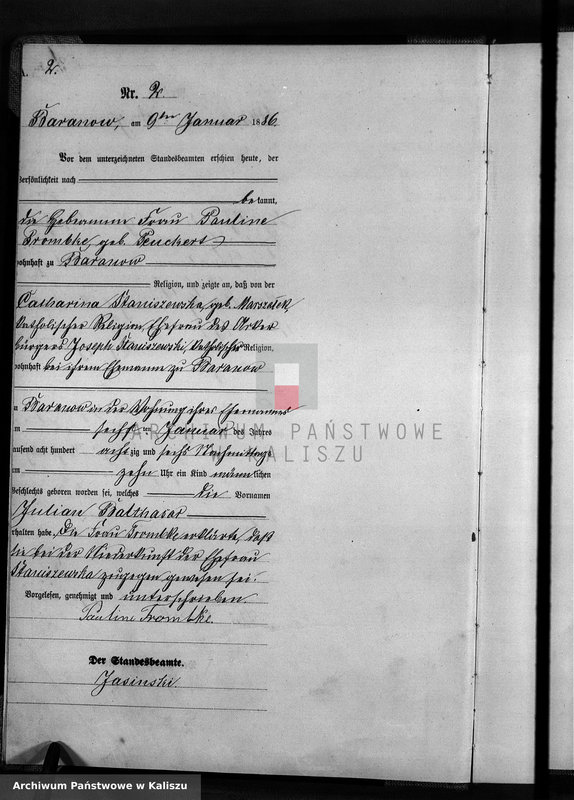 2.
Nr. 2.
Baranow, am 9ten Januar 1886.
Vor dem unterzeichneten Standesbeamten erschien heute, der
Persönlichkeit nach
bekannt,
die Hebeamme Frau Pauline
Trombke, geb. Peuckert
wohnhaft zu Baranow
Religion, und zeigte an, daß von der
Catharina Staniszewska, geb. Marszałek,
katholischer Religion, Ehefrau des Acker
bürgers Joseph Staniszewski, katholischer Religion,
wohnhaft bei ihrem Ehemanne zu Baranow
zu Baranow in der Wohnung ihres Ehemannes
am sechsten Januar des Jahres
tausend acht hundert achtzig und sechs Nachmittags
um zehn Uhr ein Kind männlichen
Geschlechts geboren worden sei, welches die Vornamen
Julian Balthasar
erhalten habe. Die Frau Trombke erklärte, daß
sie bei der Niederkunft der Ehefrau
Staniszewska zugegen gewesen sei.
Vorgelesen, genehmigt und unterschrieben.
Pauline Trombke.
Der Standesbeamte.
Jasinski.
ARCHIWUM PAŃSTWOWE
W KALISZU
Archiwum Państwowe w Kaliszu